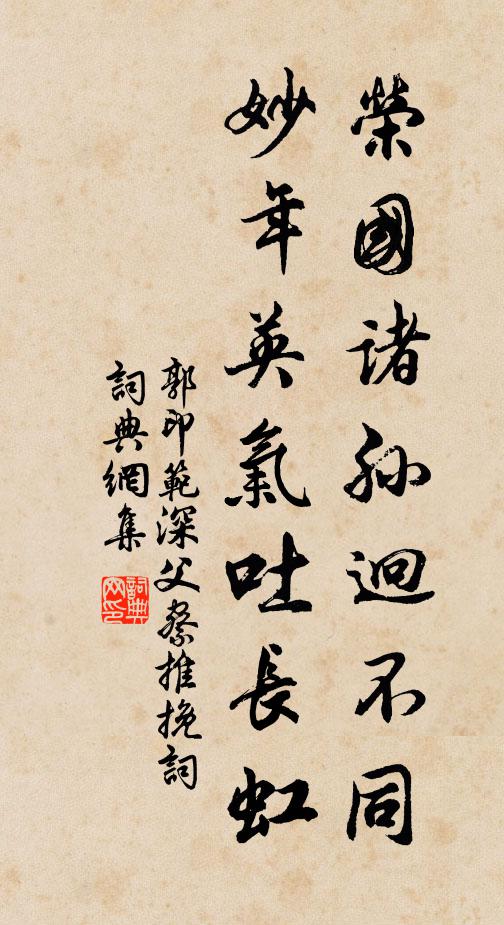 榮國諸孫迥不同
妙年英氣吐長虹
郭印範深父察推挽詞
詞典網集
詞典
网印